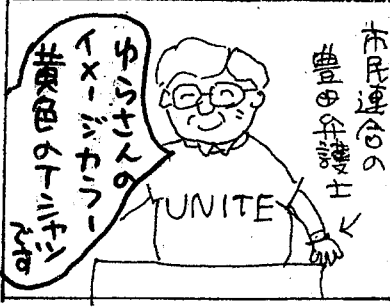 市民連合の
豊田弁護士
ゆらさんの
イメージカラー
黄色のTシャツ
です
UNITE